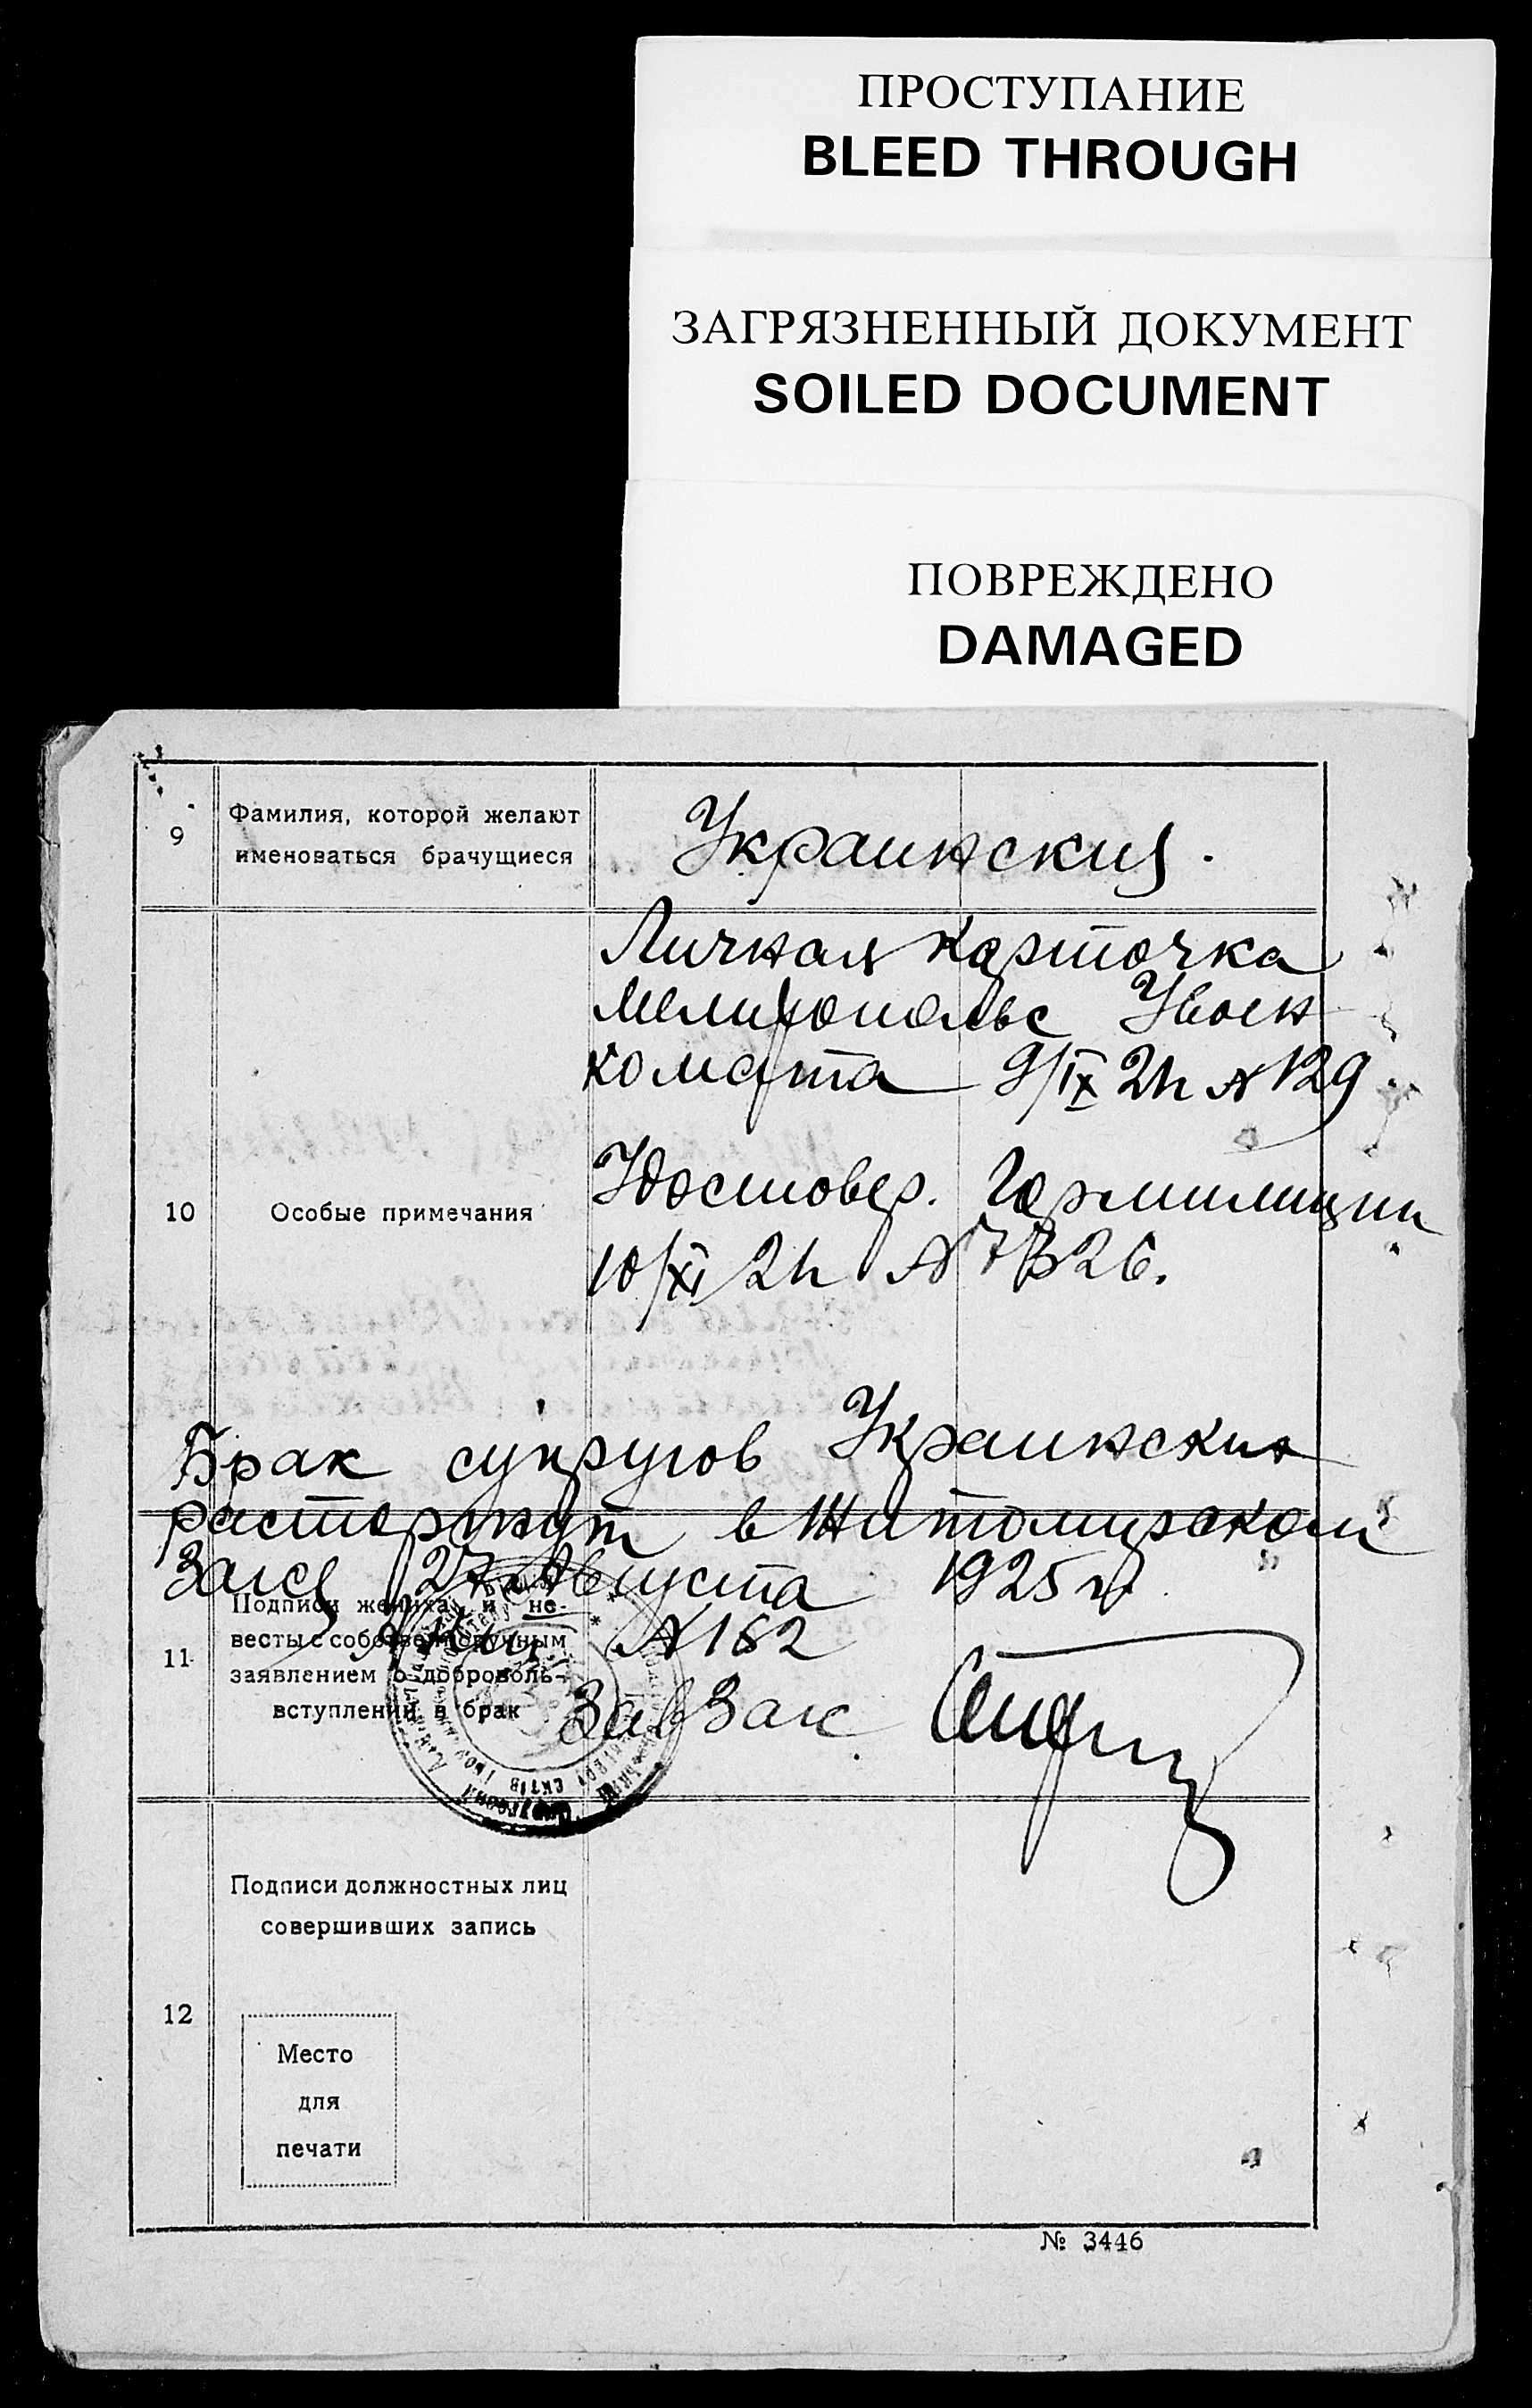 ПРОСТУПАНИЕ
BLEED THROUGH
ЗАГРЯЗНЕННЫЙ ДОКУМЕНТ
SOILED DOCUMENT
ПОВРЕЖДЕНО
DAMAGED
9
Фамилия, которой желают
именоваться брачущиеся
Украинския.
10
Особые примечания
Личная карточка
Мелитопольс Увоен
комата 9/IX 24 № 129
Удостовер. Гормилиции
10/XI 24 № 7326.
Брак супругов Украинских
расторгнут в Житомирском
Загсе 27 Августа 1925 г.
№ 162
ЗавЗагс
11
Подписи жениха и не-
весты с собственноручным
заявлением о доброволь-
вступлении в брак
12
Подписи должностных лиц
совершивших запись
Место
для
печати
№ 3446